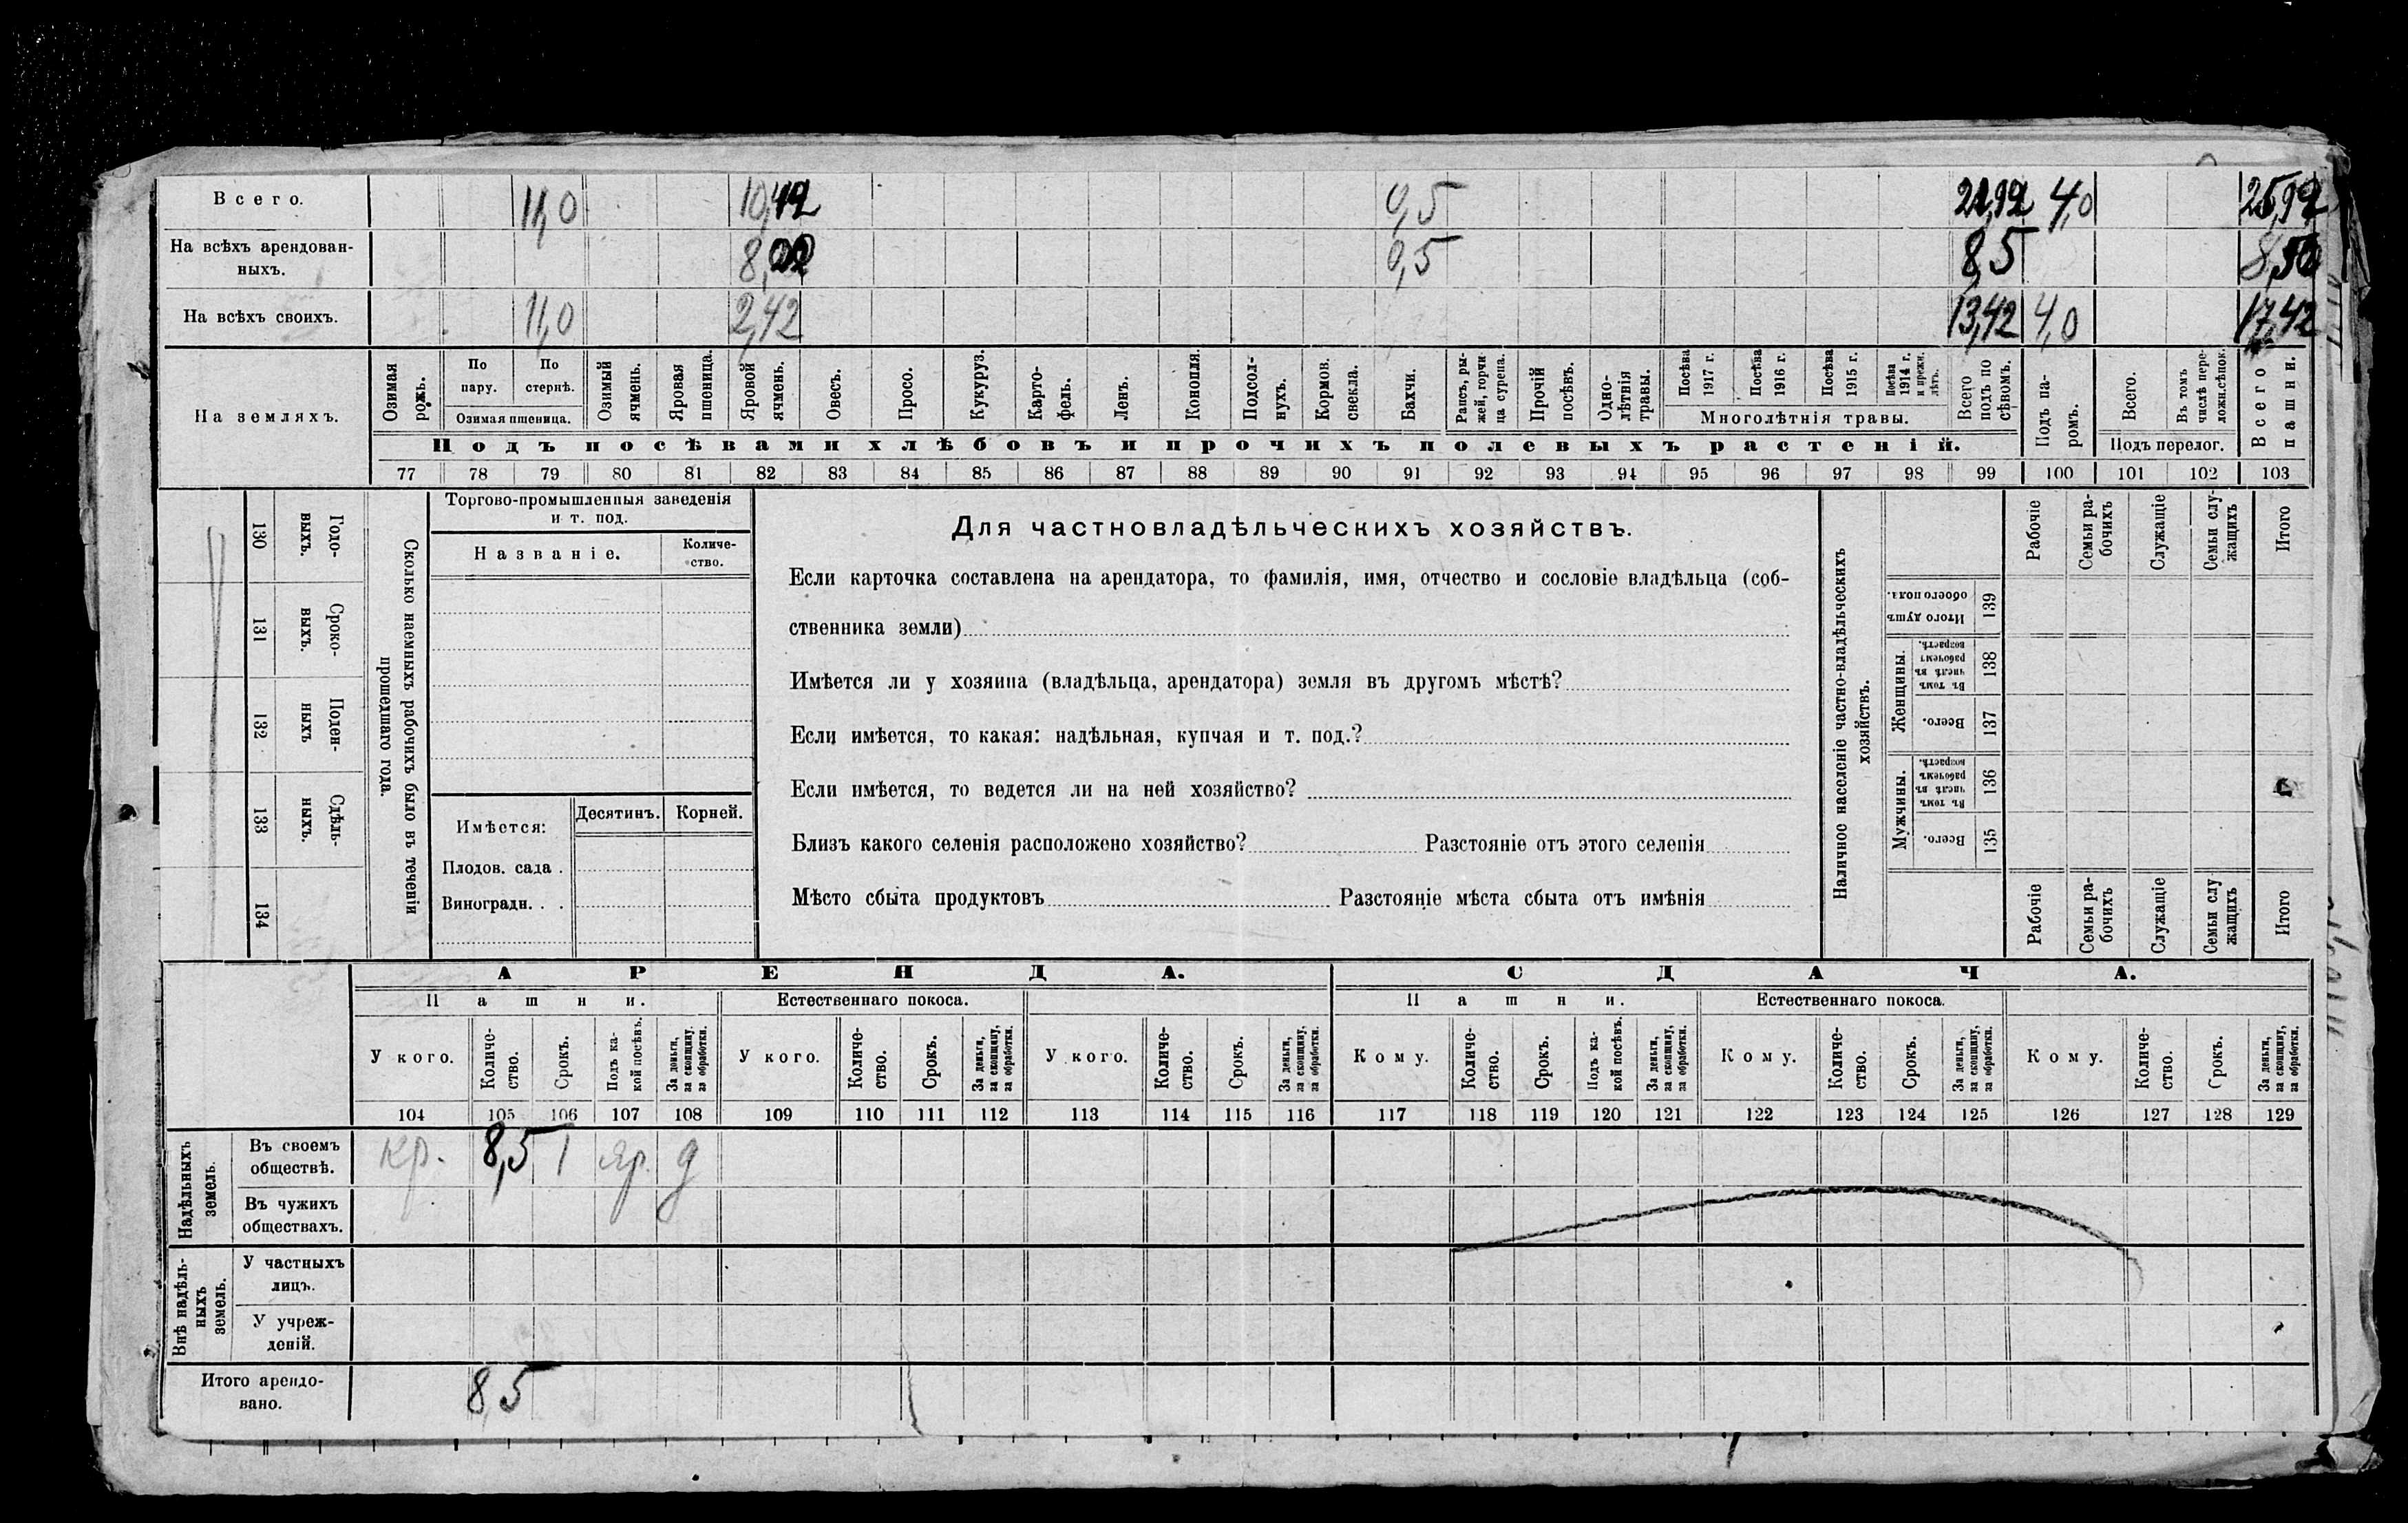 Всего. 11,0 10,42 0,5 21,92 4,0 25,92
На всѣхъ арендован-
ныхъ. 8,00 0,5 8,5 8,50
На всѣхъ своихъ. 11,0 2,42 13,42 4,0 17,42
На земляхъ.
Озимая
рожь.
По
пару.
По
стернѣ.
Озимая пшеница.
Озимый
ячмень.
Яровая
пшеница.
Яровой
ячмень.
Овесъ.
Просо.
Кукуруз.
Карто-
фель.
Ленъ.
Конопля.
Подсол-
нухъ.
Кормов.
свекла.
Бахчи.
Рапсъ, ры-
жей, горчи-
ца сурепа.
Прочій
посѣвъ.
Одно-
лѣтнія
травы.
Посѣва
1917 г.
Посѣва
1916 г.
Посѣва
1915 г.
Посѣва
1914 г.
и прежн.
лѣтъ.
Многолѣтнія травы.
Всего
подъ по
сѣвомъ.
Подъ па-
ромъ.
Всего.
Въ томъ
числѣ пере-
ложн.сѣнок.
Подъ перелог.
Всего
пашни.
Подъ посѣвами хлѣбовъ и прочихъ полевыхъ растеній.
77 78 79 80 81 82 83 84 85 86 87 88 89 90 91 92 93 94 95 96 97 98 99 100 101 102 103
130 Годо-
выхъ.
131 Сроко-
выхъ.
132 Поден-
ныхъ
133 Сдѣль-
ныхъ.
134
Сколько наемныхъ рабочихъ было въ теченіи
прошедшаго года.
Торгово-промышленныя заведенія
и т. под.
Названіе.
Количе-
ство.
Имѣется:
Десятинъ.
Корней.
Плодов. сада .
Виноградн. . .
Для частновладѣльческихъ хозяйствъ.
Если карточка составлена на арендатора, то фамилія, имя, отчество и сословіе владѣльца (соб-
ственника земли)
Имѣется ли у хозяина (владѣльца, арендатора) земля въ другомъ мѣстѣ?
Если имѣется, то какая: надѣльная, купчая и т. под.?
Если имѣется, то ведется ли на ней хозяйство?
Близъ какого селенія расположено хозяйство? Разстояніе отъ этого селенія
Мѣсто сбыта продуктовъ Разстояніе мѣста сбыта отъ имѣнія
Наличное населеніе частно-владѣльческихъ
хозяйствъ.
Рабочіе
Семьи ра-
бочихъ
Служащіе
Семьи слу-
жащихъ
Итого
Итого душъ
обоего пола.
139
Женщины.
Въ томъ
числѣ въ
рабочемъ
возрастѣ.
138
Всего.
137
Мужчины.
Въ томъ
числѣ въ
рабочемъ
возрастѣ.
136
Всего.
135
Рабочіе
Семьи ра-
бочихъ
Служащіе
Семьи слу
жащихъ
Итого
АРЕНДА. СДАЧА.
Пашни. Естественнаго покоса. Пашни. Естественнаго покоса.
У кого.
Количе-
ство.
Срокъ.
Подъ ка-
кой посѣвъ.
За деньги,
за скопщину,
за обработки.
У кого.
Количе-
ство.
Срокъ.
За деньги,
за скопщину,
за обработки.
У кого.
Количе-
ство.
Срокъ.
За деньги,
за скопщину,
за обработки.
Кому.
Количе-
ство.
Срокъ.
Подъ ка-
кой посѣвъ.
За деньги,
за скопщину,
за обработки.
Кому.
Количе-
ство.
Срокъ.
За деньги,
за скопщину,
за обработки.
Кому.
Количе-
ство.
Срокъ.
За деньги,
за скопщину,
за обработки.
104 105 106 107 108 109 110 111 112 113 114 115 116 117 118 119 120 121 122 123 124 125 126 127 128 129
Надѣльныхъ
земель.
Въ своемъ
обществѣ.
кр. 8,5 1 яр. д
Въ чужихъ
обществахъ.
Внѣ надѣль-
ныхъ
земель.
У частныхъ
лицъ.
У учреж-
деній.
Итого арендо-
вано.
8,5